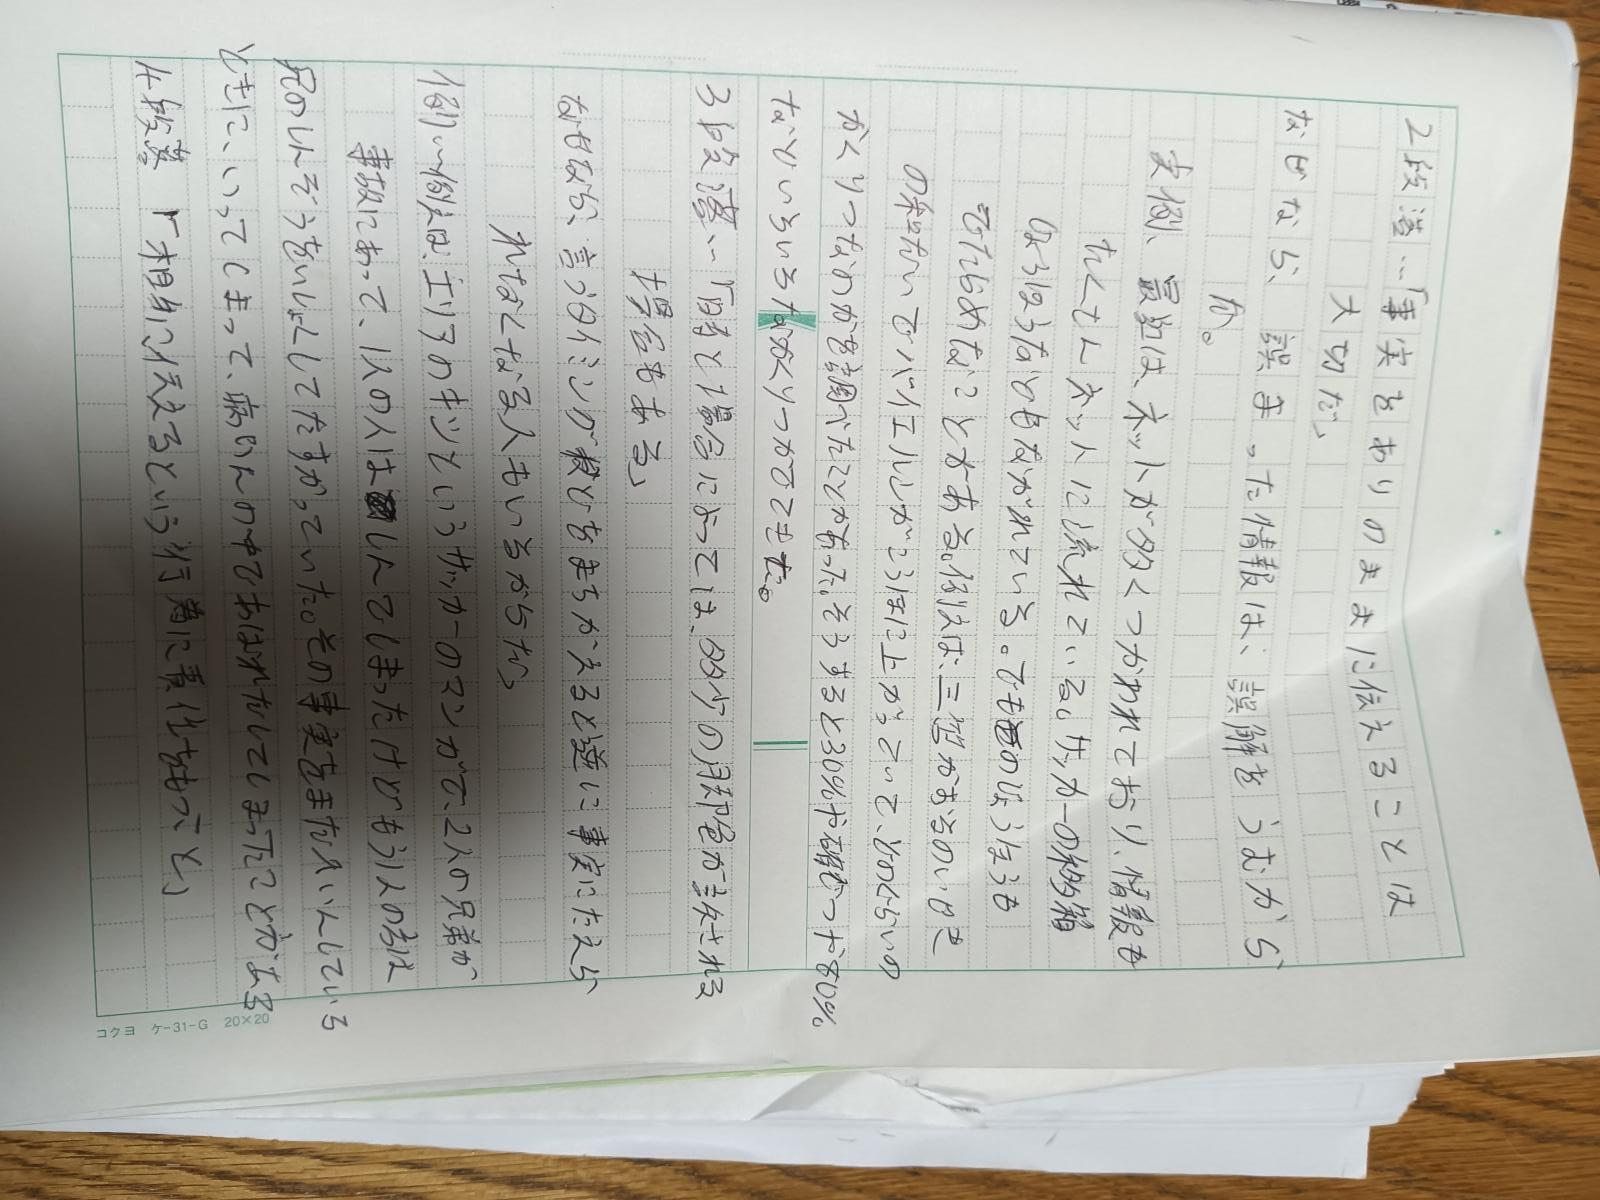 2段落…「事実をありのままに伝えることは
大切だ」
なぜなら、誤まった情報は、誤解をうむから
だ。
実例、最近は、ネットが多くつかわれており、情報も
たくさんネットに流れている。サッカーの移籍
のうわさなどもながれている。でも
でたらめなこともある。例えば、三笘がおるのいせき
の未来がいでバイエルンがこうほに上がっていて、どのくらいの
かくりつなのかを調べたことがあった。そうすると30%や確かっや80%
などいろいろなかくりつがでてきた。
3段落…「時と場合によっては、多少の月即らが許される
場合もある」
なぜなら、言うタイミングなどをまちがえると逆に事実にたえら
れなくなる人もいるからだ」
例…例えば、エリアのキシというサッカーのマンガで、2人の兄弟が
事故にあって、1人の人は しんでしまったけどもう1人の方は
兄のしんぞうをいしょくしてたすかっていた。その事実をまだにゅういんしている
ときに、いってしまって、病いんの中であばれだしてしまったことがある
4段落「相手に伝えるという行為に責任をもつこと」
コクヨ ケ-31-G 20×20